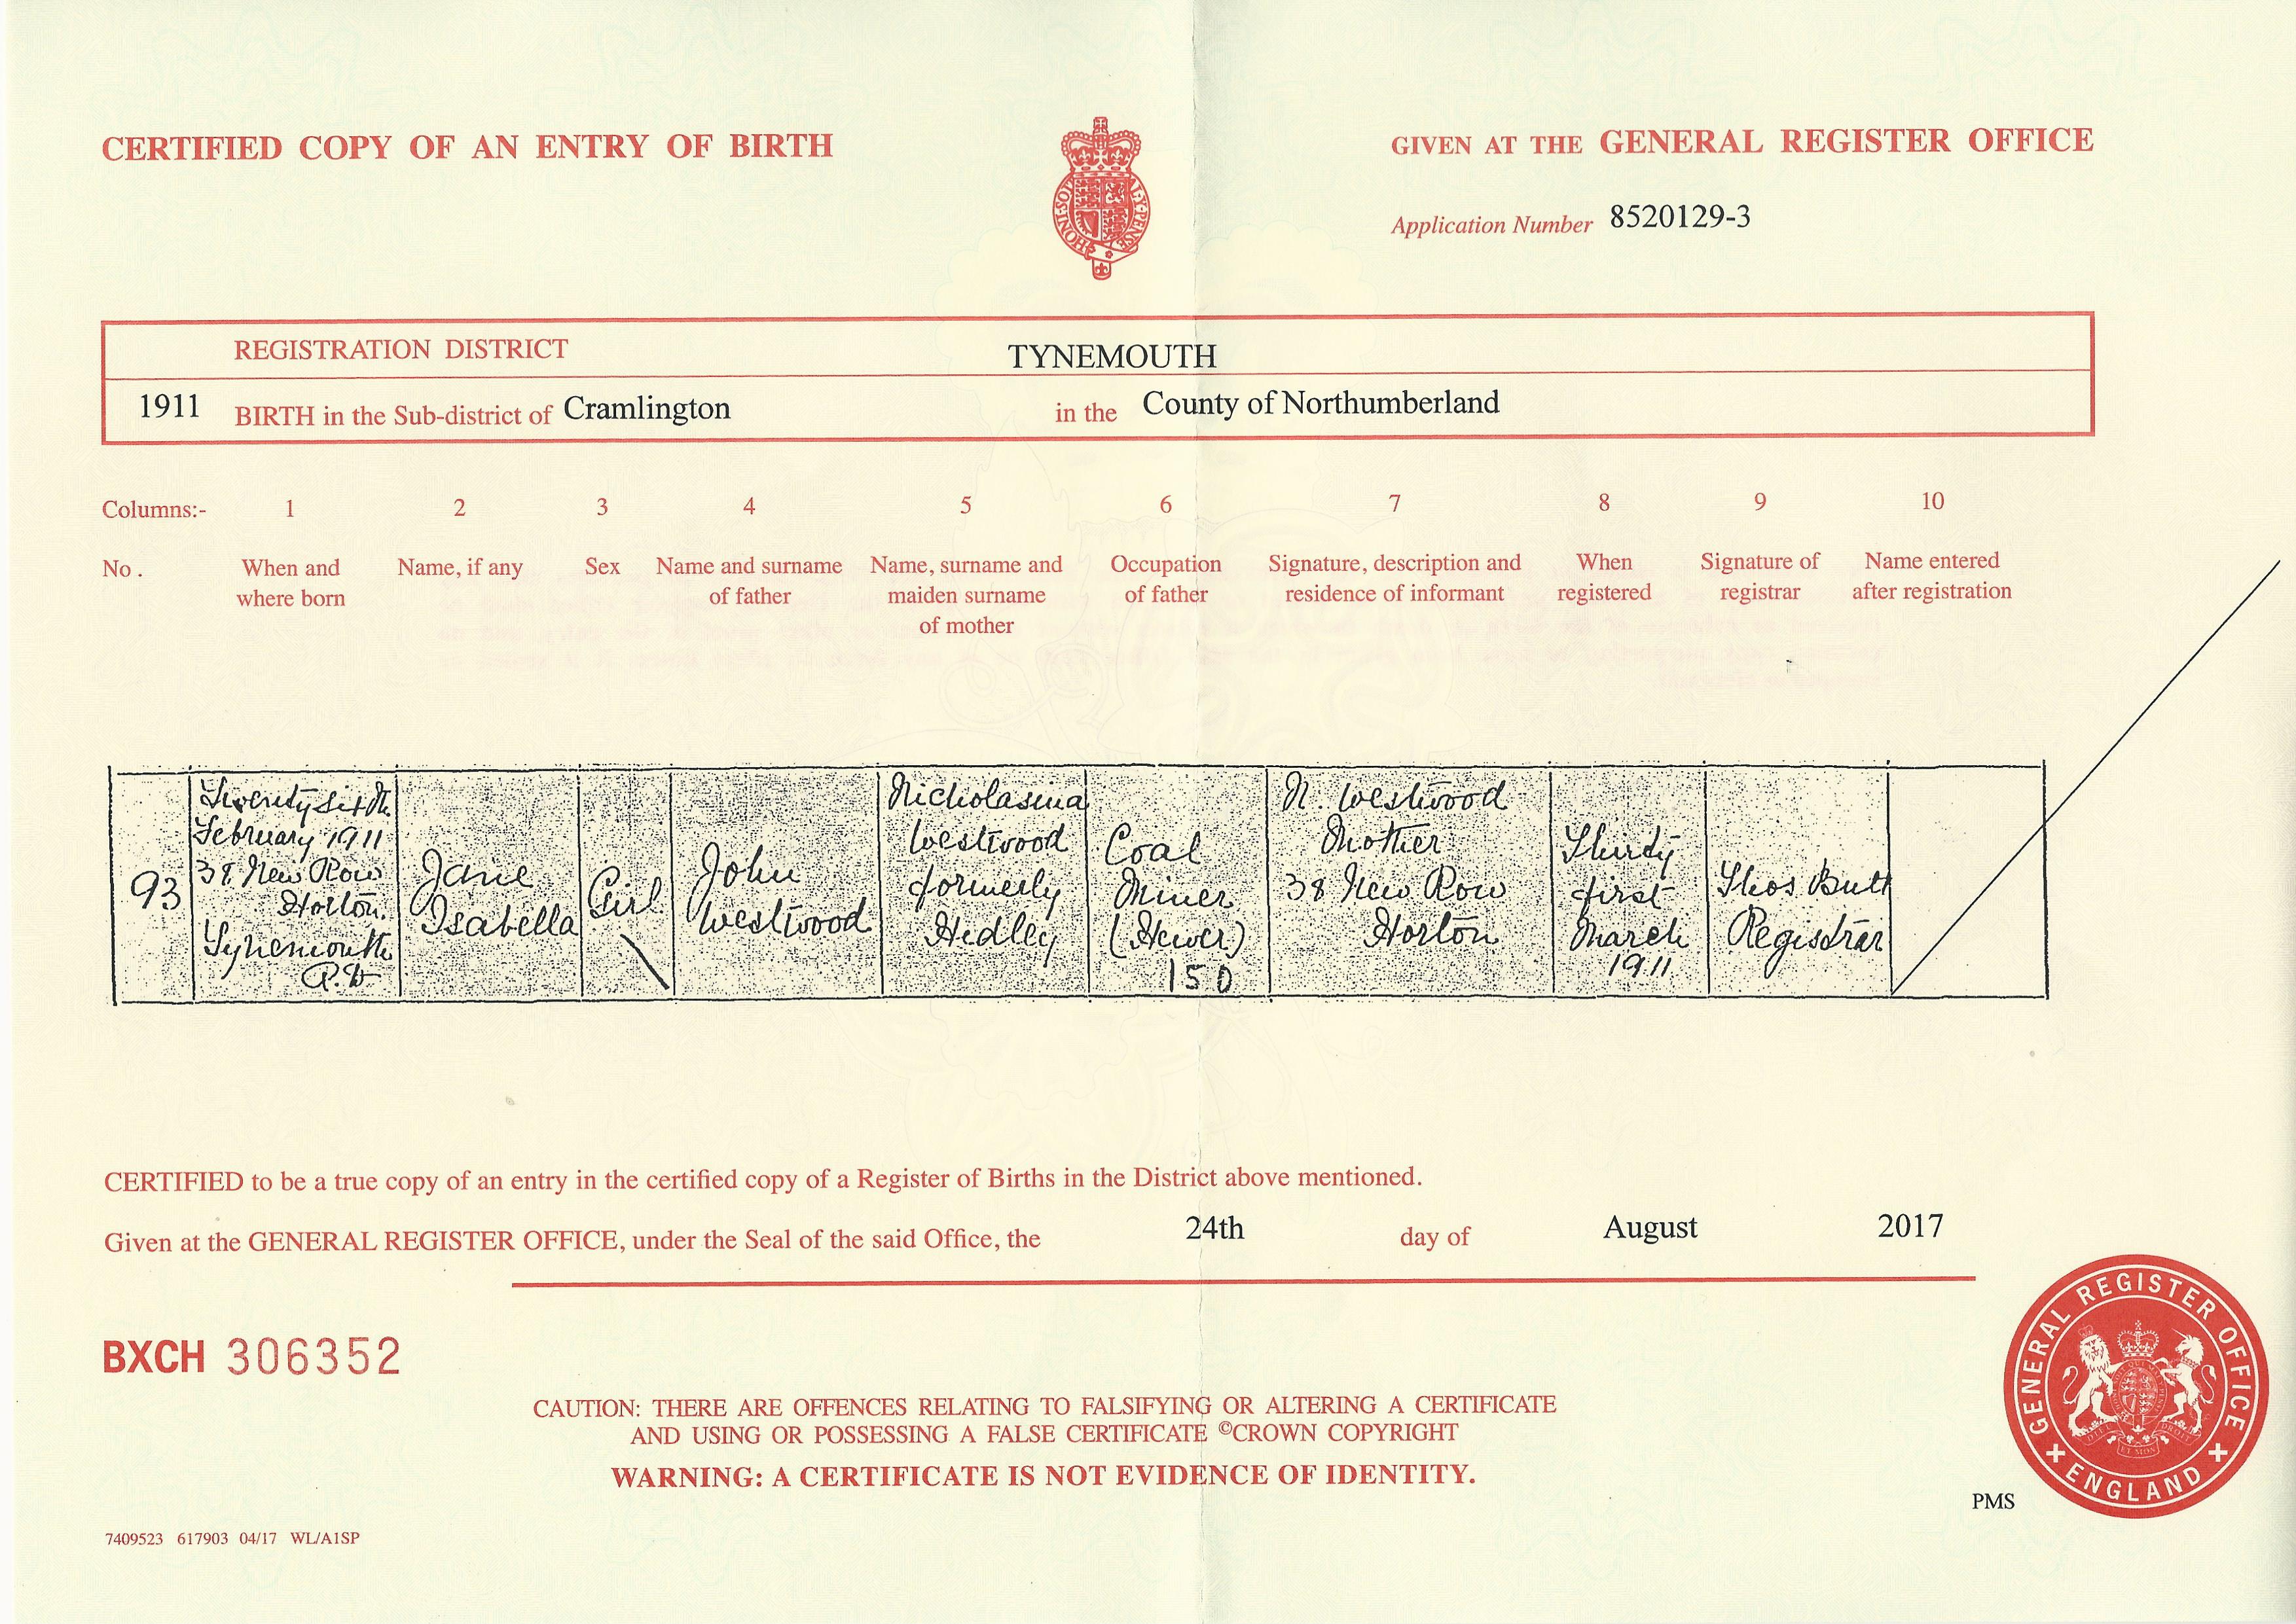 CERTIFIED COPY OF AN ENTRY OF BIRTH
GIVEN AT THE GENERAL REGISTER OFFICE
Application Number 8520129-3
REGISTRATION DISTRICT TYNEMOUTH
1911 BIRTH in the Sub-district of Cramlington in the County of Northumberland
Columns:- 1 2 3 4 5 6 7 8 9 10
No. When and where born
Name, if any
Sex
Name and surname of father
Name, surname and maiden surname of mother
Occupation of father
Signature, description and residence of informant
When registered
Signature of registrar
Name entered after registration
93
Twenty sixth
February 1911
38 New Row
Horton.
Tynemouth
R.D
Jane
Isabella
Girl
John
Westwood
Nicholasina
Westwood
formerly
Hedley
Coal
Miner
(Hewer)
150
N. Westwood
Mother
38 New Row
Horton
Thirty
first
March
1911
Thos Butt
Registrar
CERTIFIED to be a true copy of an entry in the certified copy of a Register of Births in the District above mentioned.
Given at the GENERAL REGISTER OFFICE, under the Seal of the said Office, the 24th day of August 2017
BXCH 306352
CAUTION: THERE ARE OFFENCES RELATING TO FALSIFYING OR ALTERING A CERTIFICATE
AND USING OR POSSESSING A FALSE CERTIFICATE ©CROWN COPYRIGHT
WARNING: A CERTIFICATE IS NOT EVIDENCE OF IDENTITY.
GENERAL REGISTER OFFICE
ENGLAND
PMS
7409523 617903 04/17 WL/A1SP